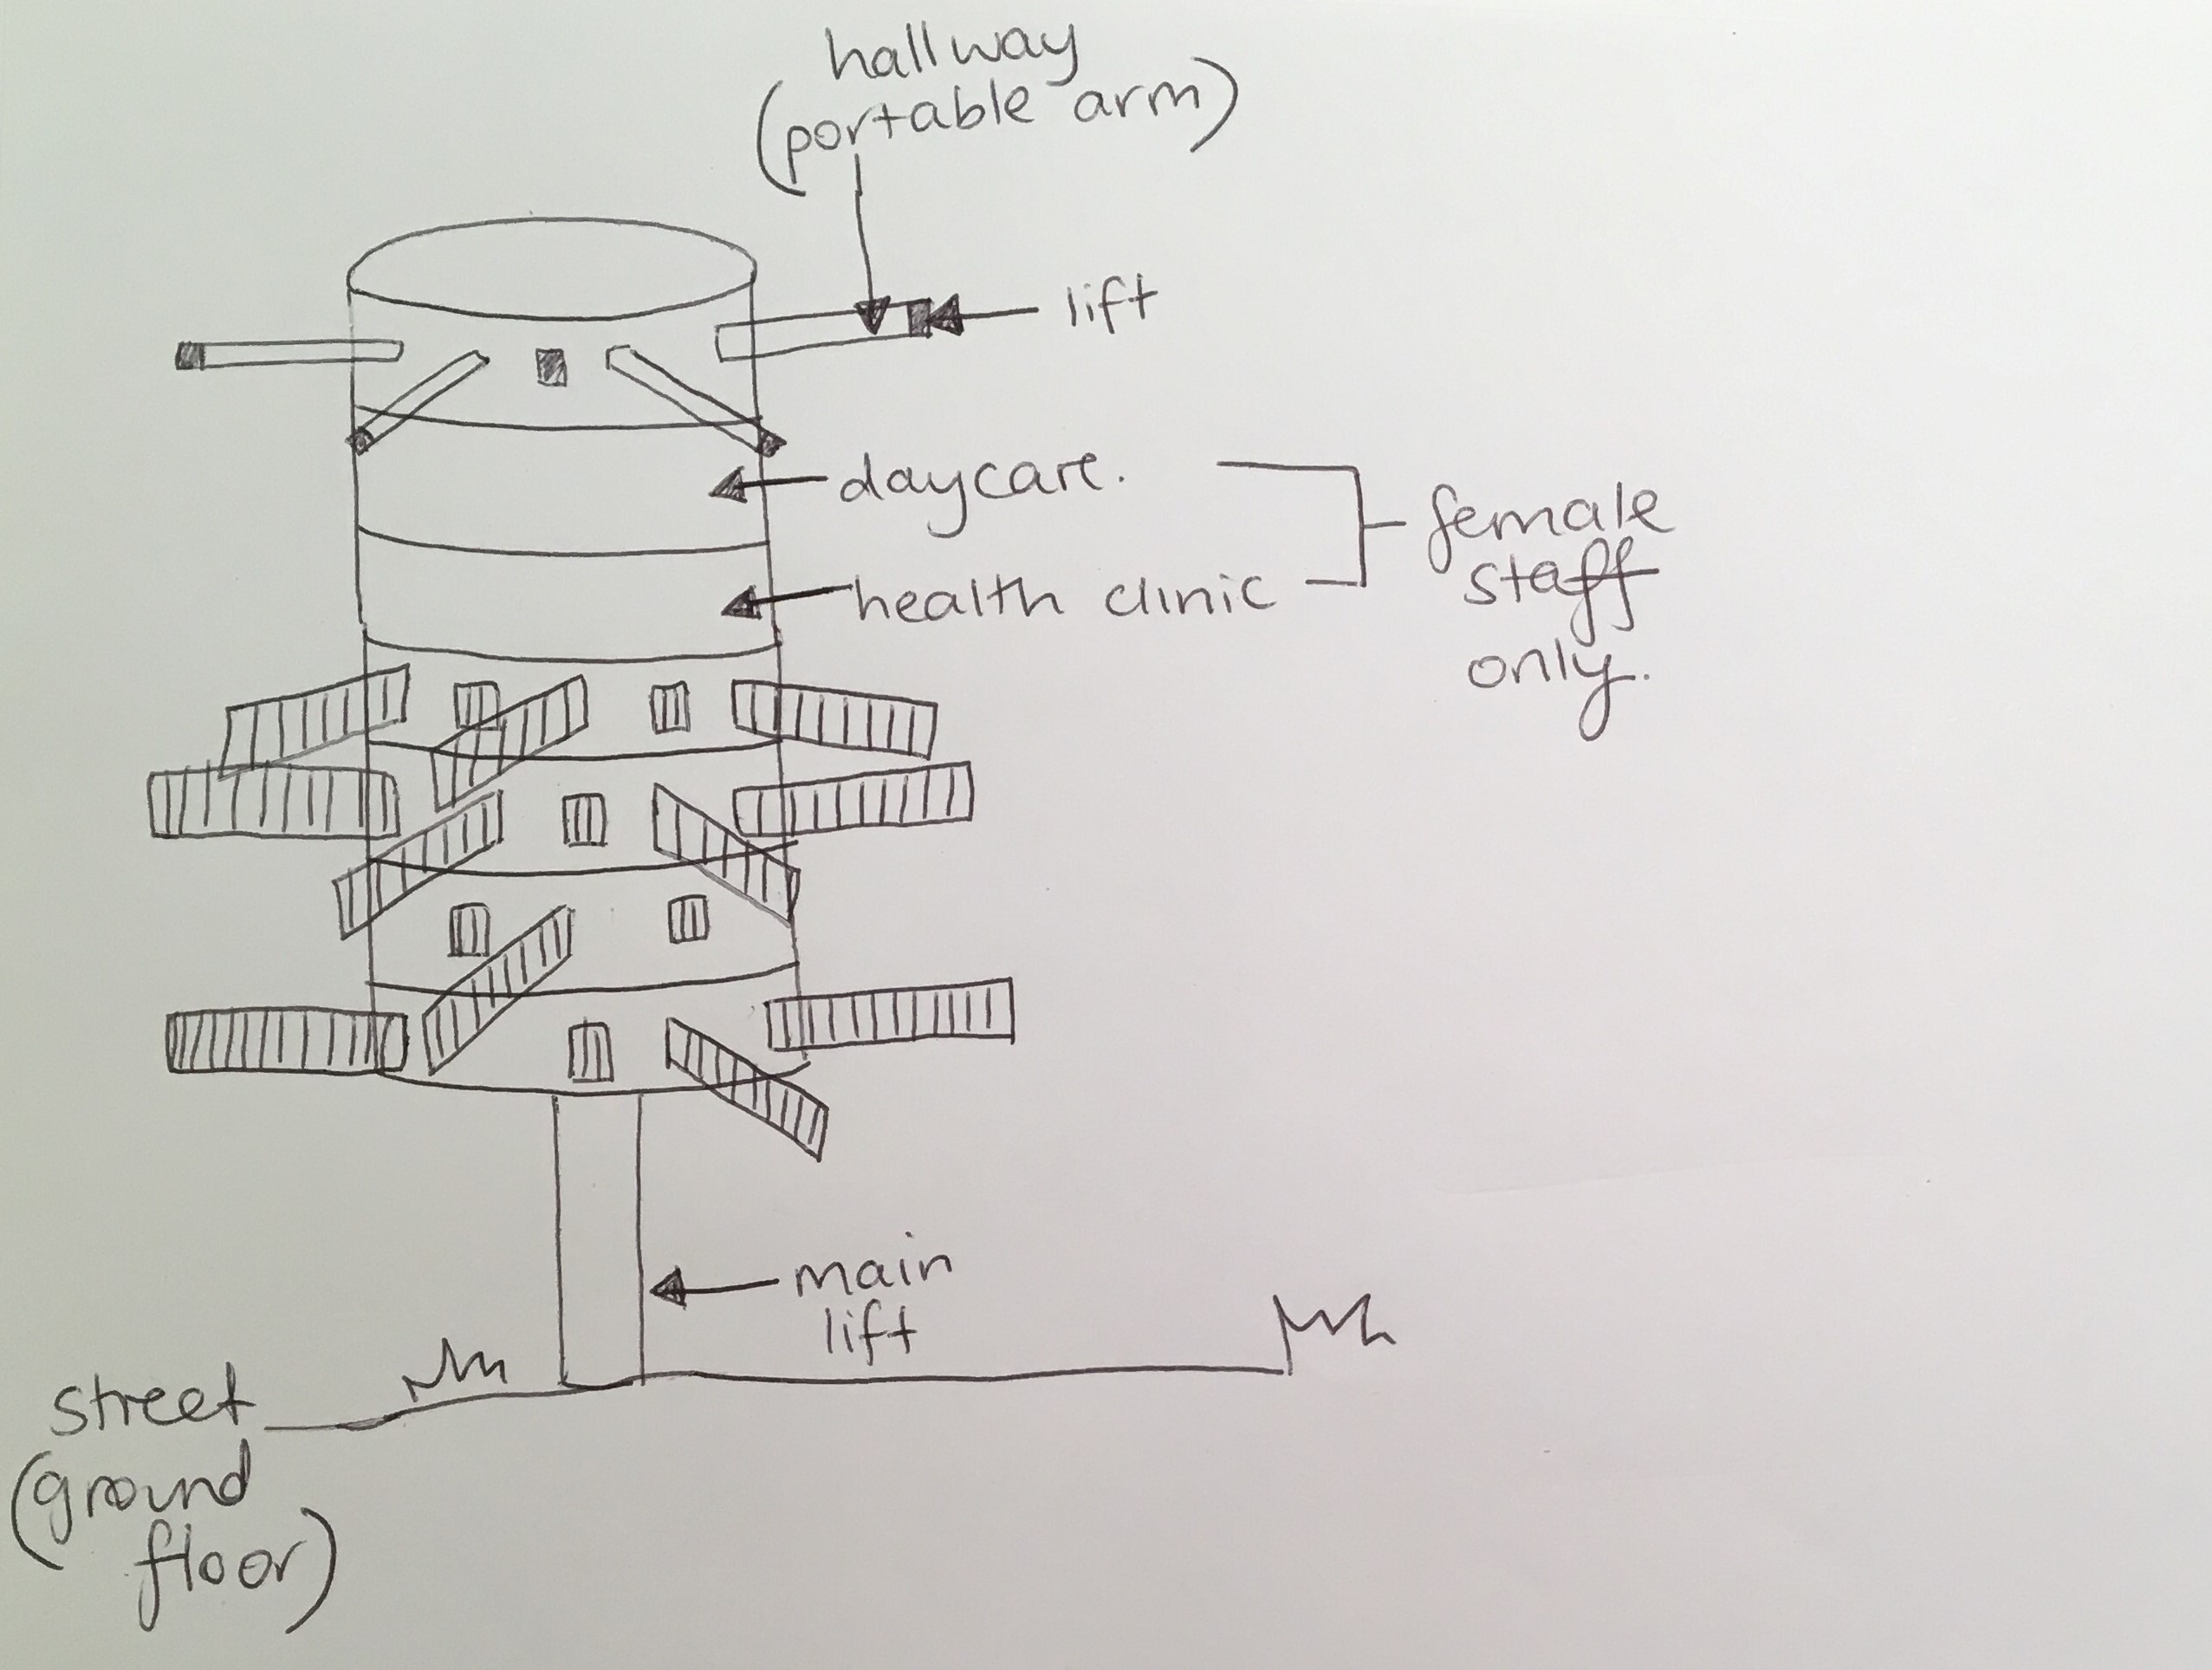 hallway
(portable arm)
lift
daycare.
health clinic
female
staff
only.
main
lift
street
(ground
floor)